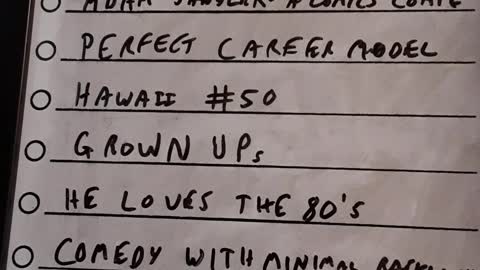 ADAM SANDLER: A COMICS COMIC
PERFECT CAREER MODEL
HAWAII #50
GROWN UPs
HE LOVES THE 80's
COMEDY WITH MINIMAL